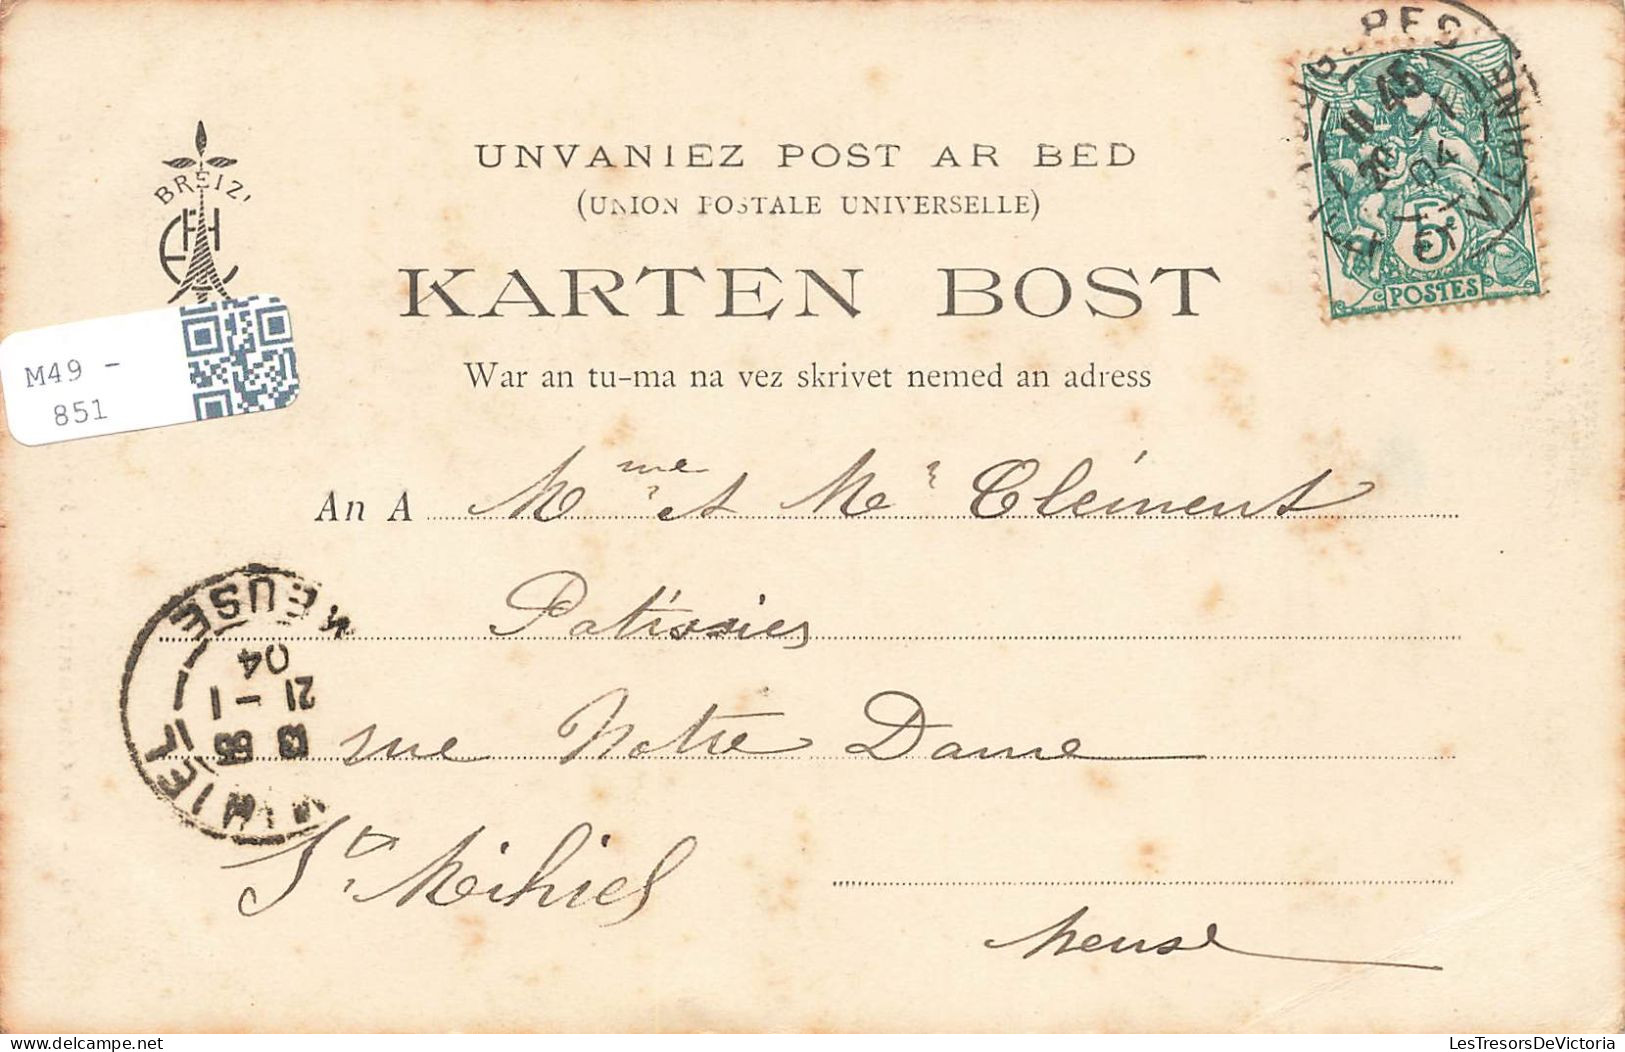 BREIZ'
UNVANIEZ POST AR BED
(UNION POSTALE UNIVERSELLE)
KARTEN BOST
War an tu-ma na vez skrivet nemed an adress
11 45
20 -1
04
5c
POSTES
M49 -
851
An A Mme et Mr Clément
Patissier
rue Notre Dame
St Mihiel
Meuse
MEUSE
04
21 - 1
MIHIEL
LesTresorsDeVictoria
www.delcampe.net